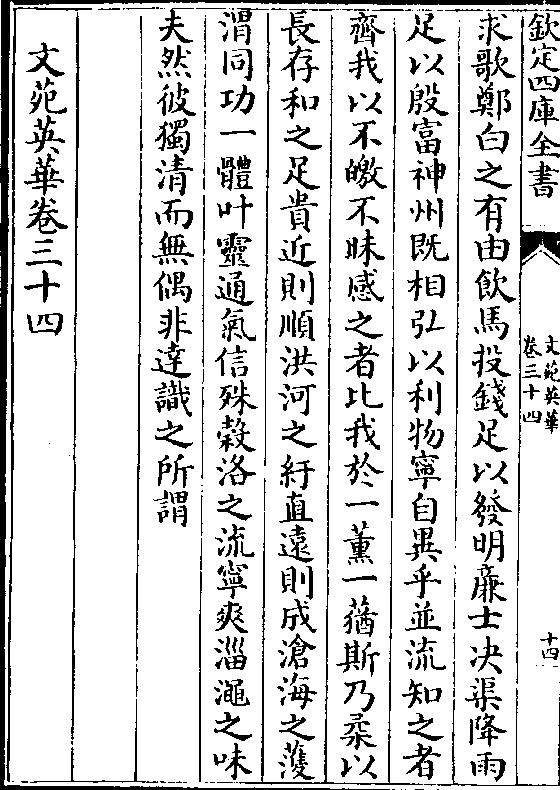 欽定四庫全書
文苑英華
卷三十四
十四
求歌鄭白之有由飲馬投錢足以發明廉士决渠降雨
足以殷富神州既相弘以利物寧自異乎並流知之者
齊我以不皦不昧感之者比我於一薰一蕕斯乃柔以
長存和之足貴近則順洪河之紆直遠則成滄海之
渭同功一體叶靈通氣信殊穀洛之流寧爽淄澠之味
夫然彼獨清而無偶非逹識之所謂
文苑英華卷三十四